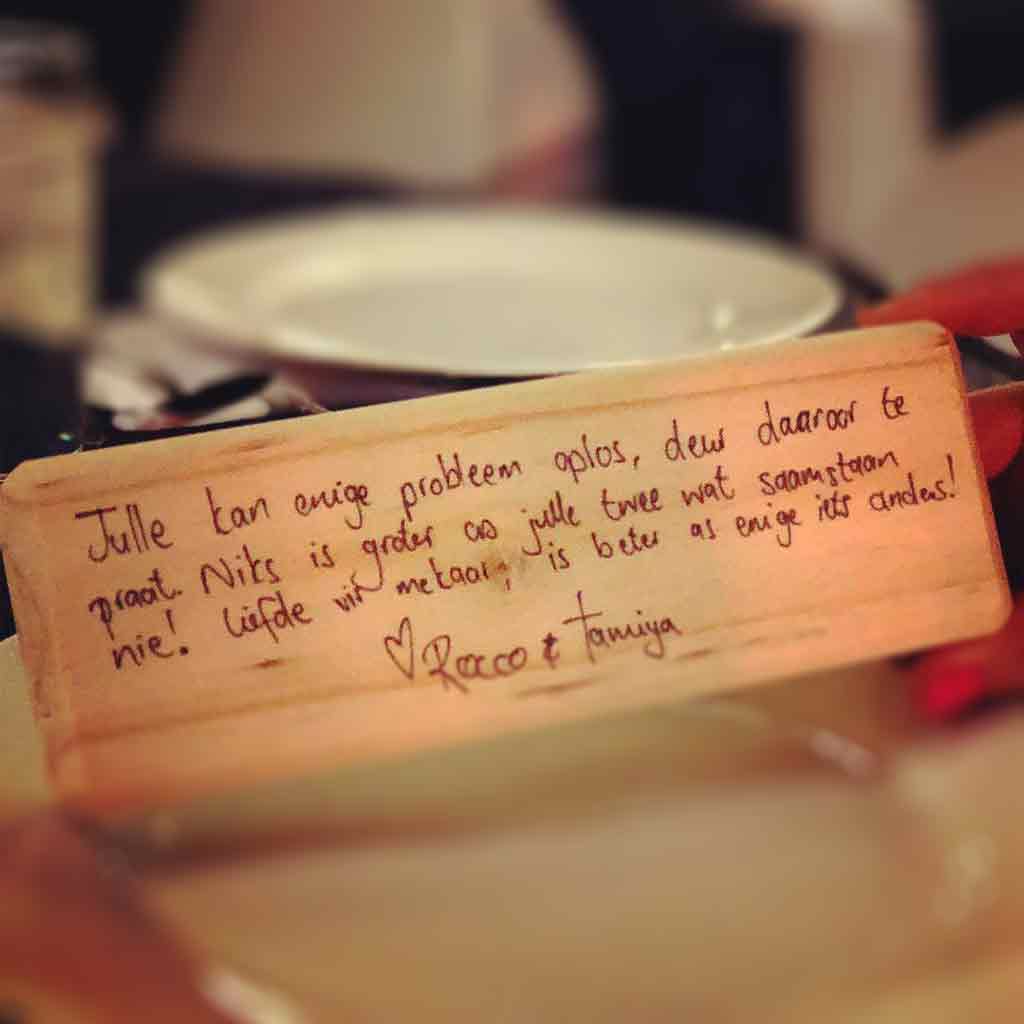 Julle kan enige probleem oplos, deur daaroor te
praat. Niks is groter as julle twee wat saamstaan
nie! Liefde vir mekaar, is beter as enige iets anders!
♡ Rocco & Tamiya